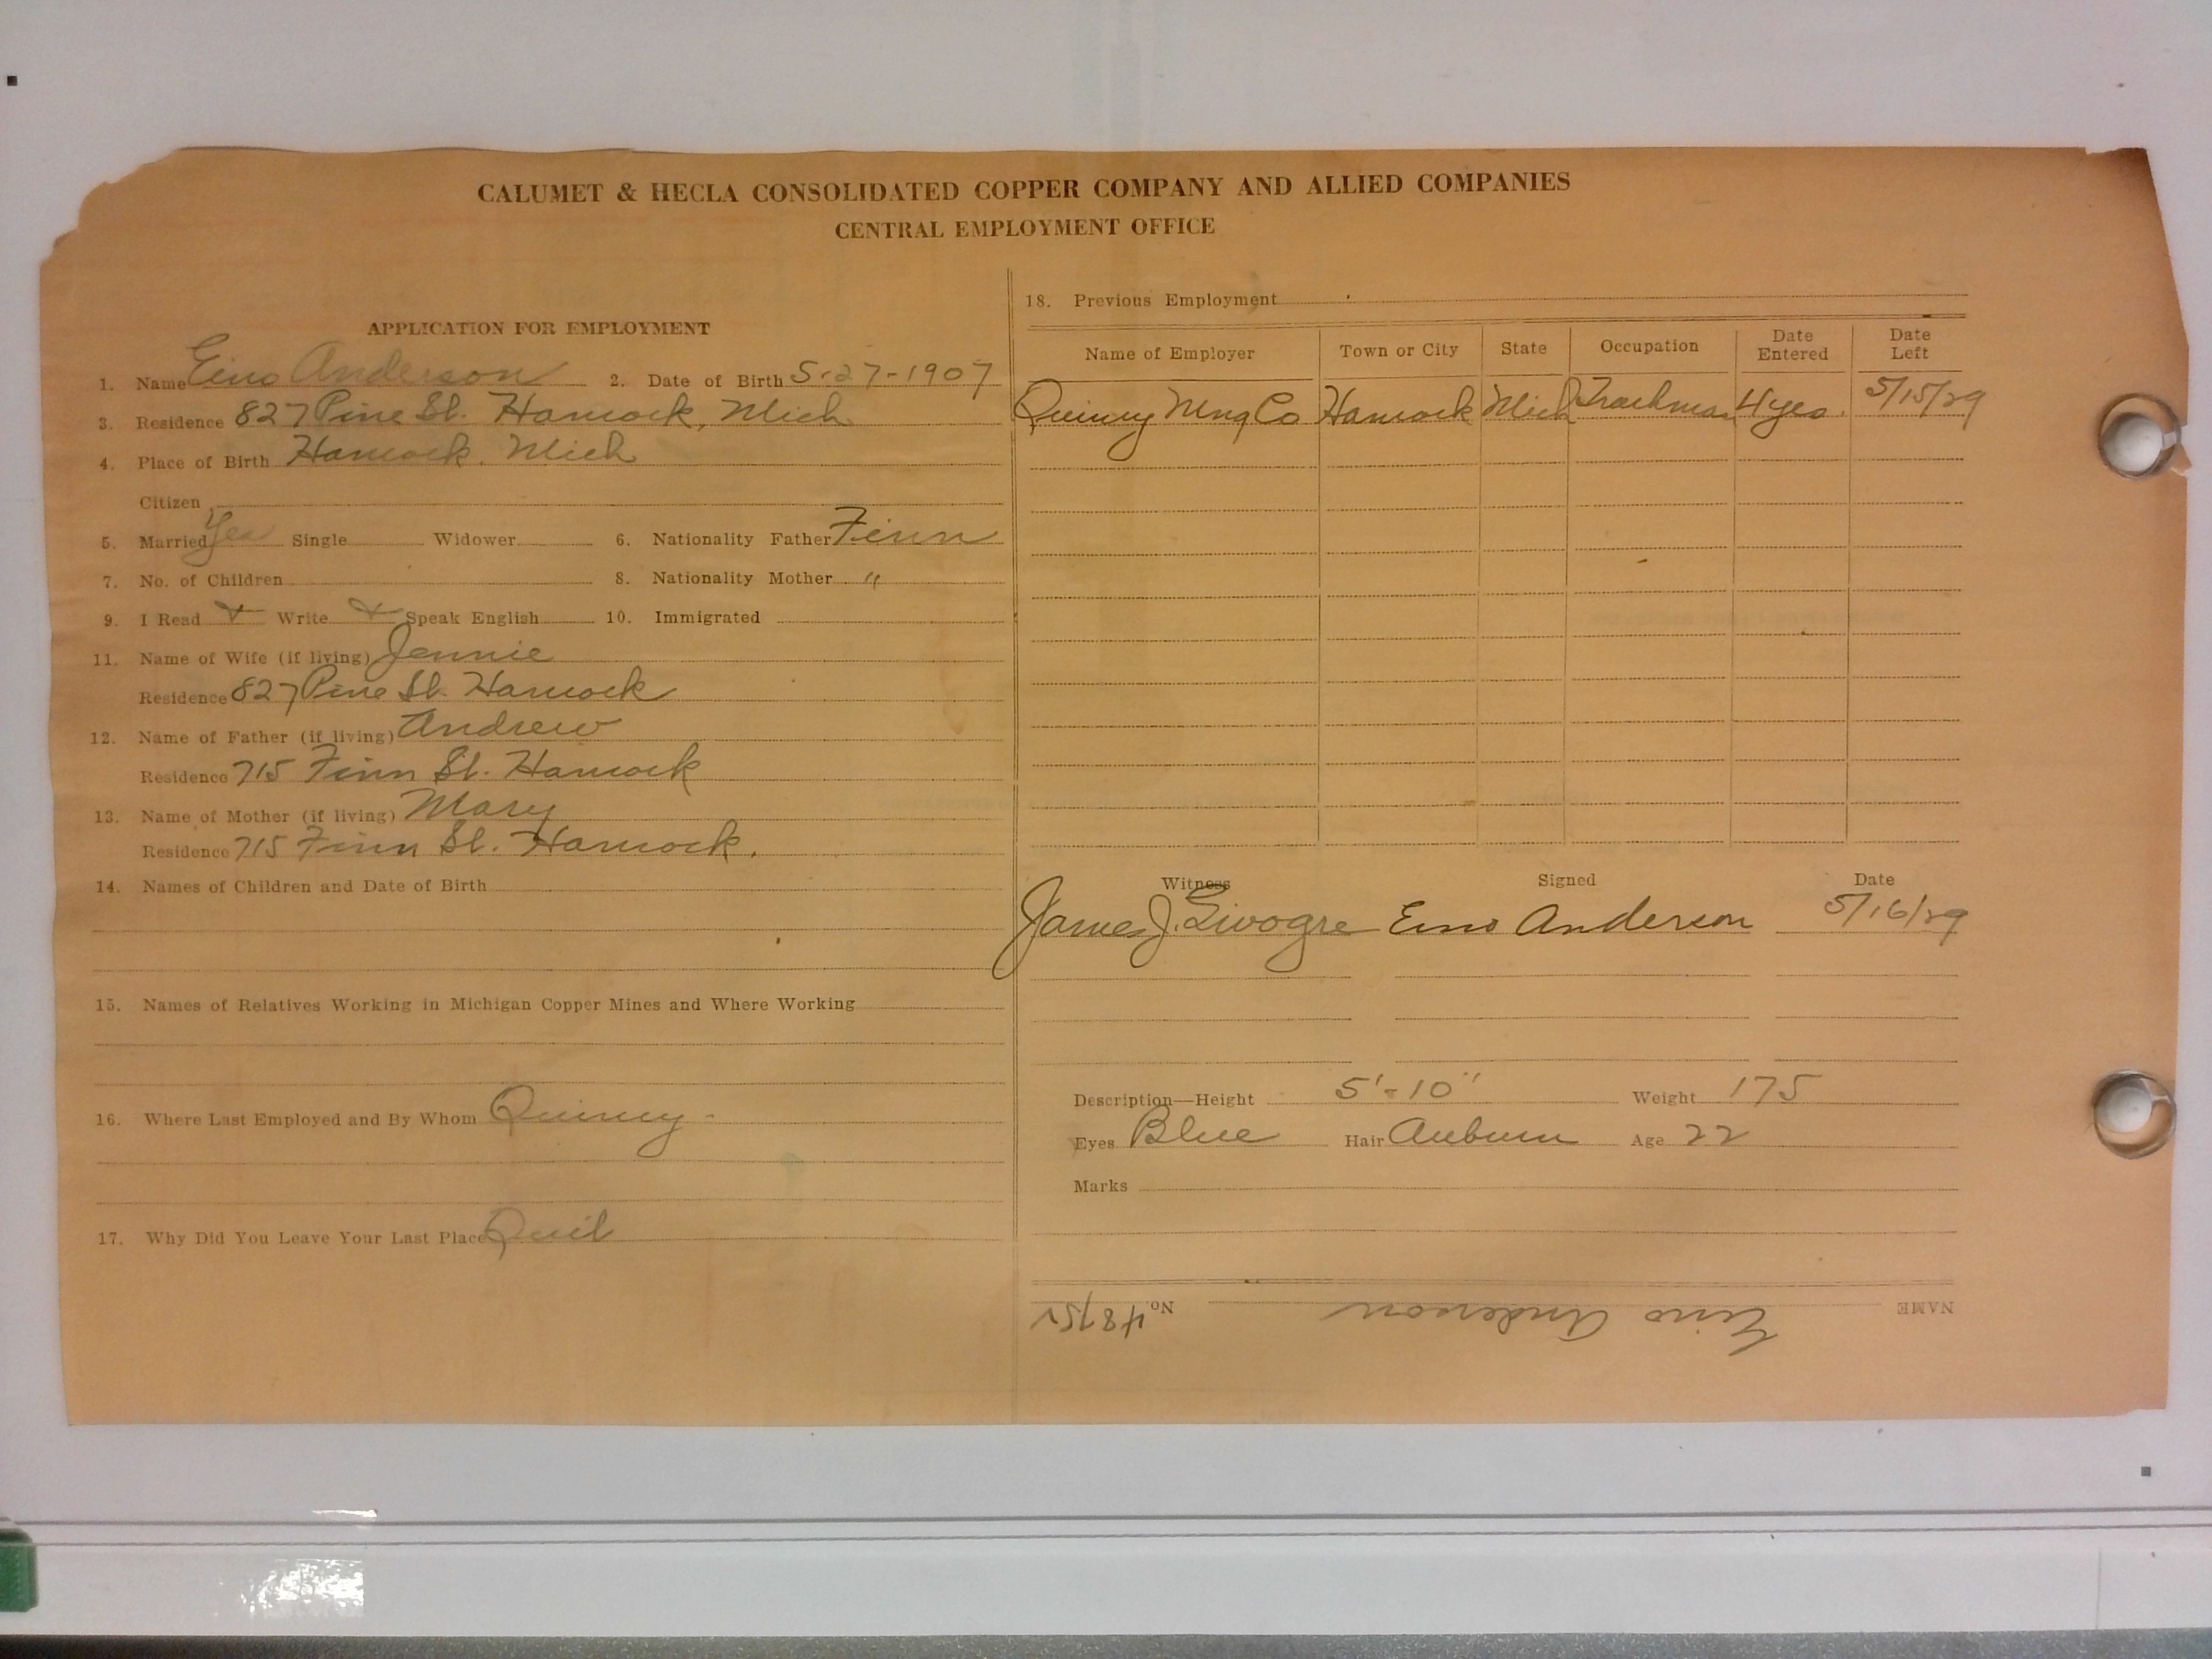 CALUMET & HECLA CONSOLIDATED COPPER COMPANY AND ALLIED COMPANIES
CENTRAL EMPLOYMENT OFFICE
APPLICATION FOR EMPLOYMENT
1. Name Eino Anderson 2. Date of Birth 5-27-1907
3. Residence 827 Pine St. Hancock, Mich
4. Place of Birth Hancock, Mich
Citizen
5. Married Yes Single Widower 6. Nationality Father Finn
7. No. of Children 8. Nationality Mother "
9. I Read + Write + Speak English 10. Immigrated
11. Name of Wife (if living) Jennie
Residence 827 Pine St. Hancock
12. Name of Father (if living) Andrew
Residence 715 Finn St. Hancock
13. Name of Mother (if living) Mary
Residence 715 Finn St. Hancock.
14. Names of Children and Date of Birth
15. Names of Relatives Working in Michigan Copper Mines and Where Working
16. Where Last Employed and By Whom Quincy -
17. Why Did You Leave Your Last Place Quit
18. Previous Employment
Name of Employer Town or City State Occupation Date Entered Date Left
Quincy Mng Co Hancock Mich Trackman 4 yrs. 5/15/29
Witness Signed Date
James J. Eino Anderson 5/16/29
Description—Height 5'-10" Weight 175
Eyes Blue Hair Auburn Age 22
Marks
NAME Eino Anderson No.